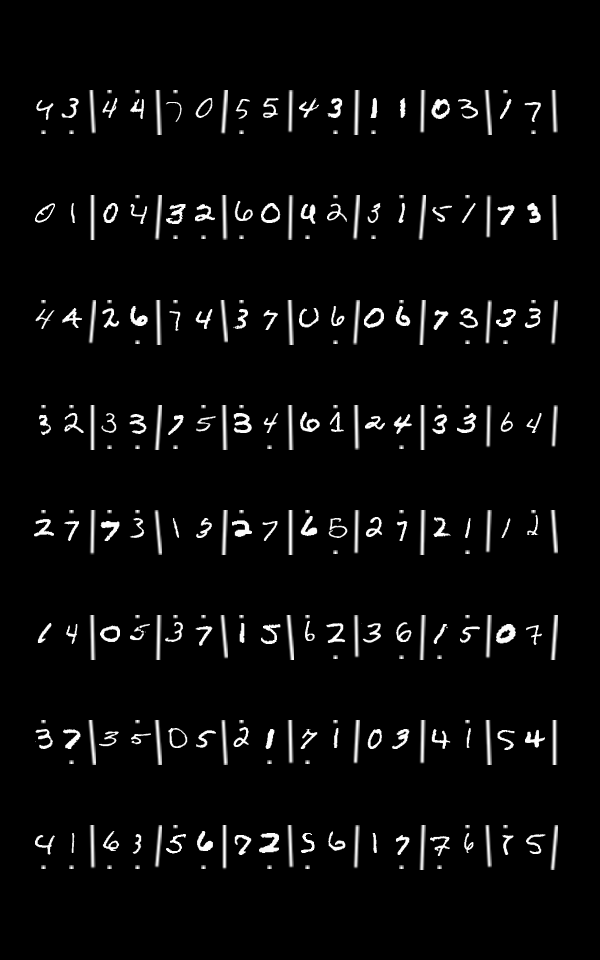 4̣ 3̣ | 4̇ 4̇ | 7̇ 0 | 5̣̇ 5 | 4 3̣̇ | 1̣ 1 | 0 3 | 1̇ 7̣ |
0 1 | 0 4̇ | 3̣ 2̣ | 6̣̇ 0 | 4 2̣̇ | 3̣ 1̇ | 5 1̇ | 7 3 |
4̇ 4 | 2̇ 6̣ | 7̇ 4 | 3̇ 7 | 0 6̇ | 0 6̇ | 7 3̣ | 3̣ 3̇ |
3̇ 2̇ | 3̣ 3̣ | 7̣ 5̇ | 3 4̣ | 6 1̇ | 2 4̣ | 3̇ 3̇ | 6 4 |
2̇ 7̇ | 7̇ 3̇ | 1 3 | 2̇ 7 | 6̇ 5̣ | 2 7̇ | 2 1̣ | 1 2̇ |
1 4 | 0 5̇ | 3̇ 7̇ | 1̇ 5 | 6̇ 2̣ | 3 6̣ | 1̣ 5̇ | 0 7̇ |
3̇ 7̣ | 3 5̇ | 0 5 | 2̇ 1̣ | 7̣ 1̇ | 0 3 | 4 1̇ | 5 4 |
4̣ 1̣ | 6̣ 3̣ | 5̇ 6̣ | 7 2̣ | 5̣ 6 | 1 7̣ | 7̣ 6̇ | 7̇ 5 |